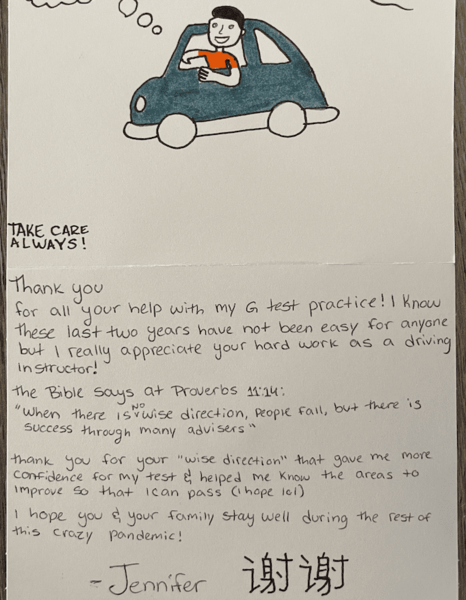 TAKE CARE
ALWAYS!
Thank you
for all your help with my G test practice! I know
these last two years have not been easy for anyone
but I really appreciate your hard work as a driving
instructor!
the Bible says at Proverbs 11:14:
"When there is NO wise direction, people fall, but there is
success through many advisers"
thank you for your "wise direction" that gave me more
confidence for my test & helped me know the areas to
improve so that I can pass (I hope lol)
I hope you & your family stay well during the rest of
this crazy pandemic!
- Jennifer 谢谢